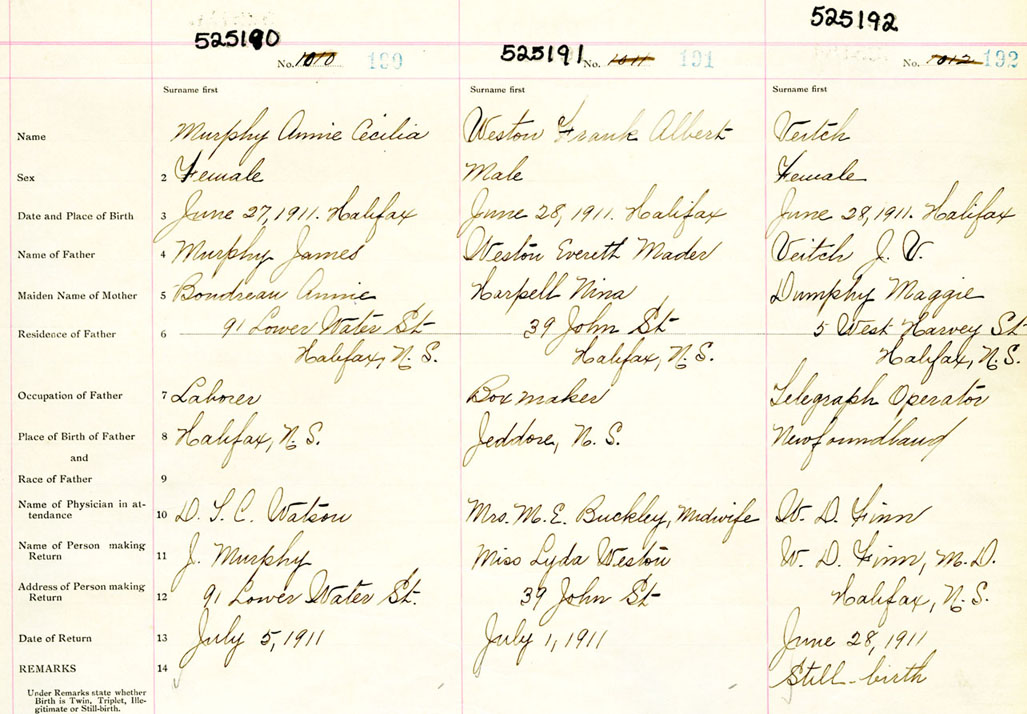 525190 525191 525192
No. 1010 190 No. 1011 191 No. 1012 192
Surname first Surname first Surname first
Name Murphy Annie Cecilia Weston Frank Albert Veitch
Sex 2 Female Male Female
Date and Place of Birth 3 June 27, 1911. Halifax June 28, 1911. Halifax June 28, 1911. Halifax
Name of Father 4 Murphy James Weston Everett Mader Veitch J. V.
Maiden Name of Mother 5 Boudreau Annie Harpell Nina Dumphy Maggie
Residence of Father 6 91 Lower Water St 39 John St 5 West Harvey St
Halifax, N. S. Halifax, N. S. Halifax, N. S.
Occupation of Father 7 Laborer Box maker Telegraph Operator
Place of Birth of Father 8 Halifax, N. S. Jeddore, N. S. Newfoundland
and
Race of Father 9
Name of Physician in at-
tendance 10 D. T. C. Watson Mrs. M. E. Buckley, Midwife W. D. Finn
Name of Person making
Return 11 J. Murphy Miss Lyda Weston W. D. Finn, M. D.
Address of Person making
Return 12 91 Lower Water St. 39 John St Halifax, N. S.
Date of Return 13 July 5, 1911 July 1, 1911 June 28, 1911
REMARKS 14 Still-birth
Under Remarks state whether
Birth is Twin, Triplet, Ille-
gitimate or Still-birth.